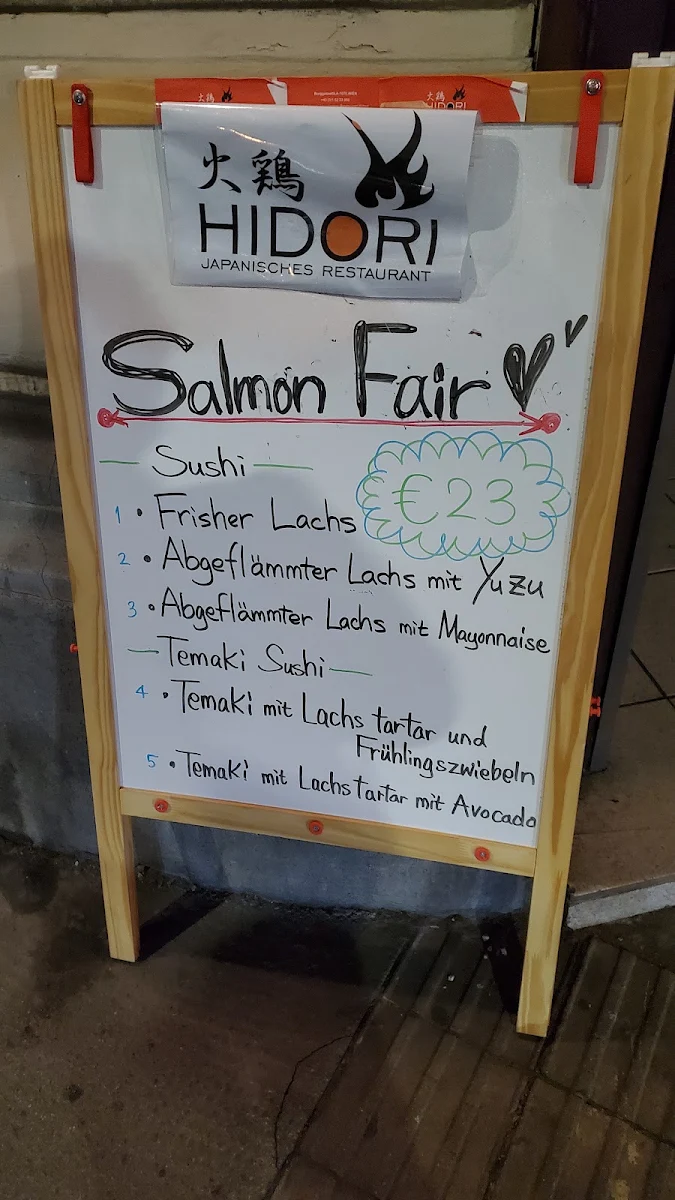 火鶏
HIDORI
火鶏
HIDORI
JAPANISCHES RESTAURANT
Salmon Fair
Sushi
€23
1 • Frisher Lachs
2 • Abgeflämmter Lachs mit Yuzu
3 • Abgeflämmter Lachs mit Mayonnaise
Temaki Sushi
4 • Temaki mit Lachs tartar und
Frühlingszwiebeln
5 • Temaki mit Lachstartar mit Avocado